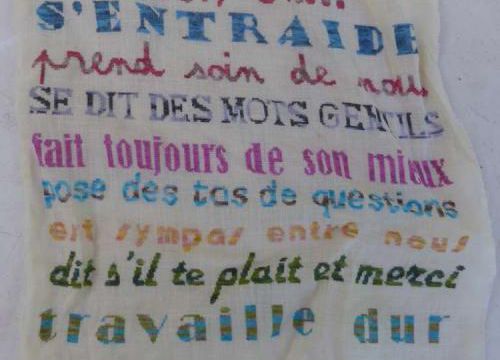 S'ENTRAIDE
prend soin de nous
SE DIT DES MOTS GENTILS
fait toujours de son mieux
pose des tas de questions
est sympas entre nous
dit s'il te plait et merci
travaille dur